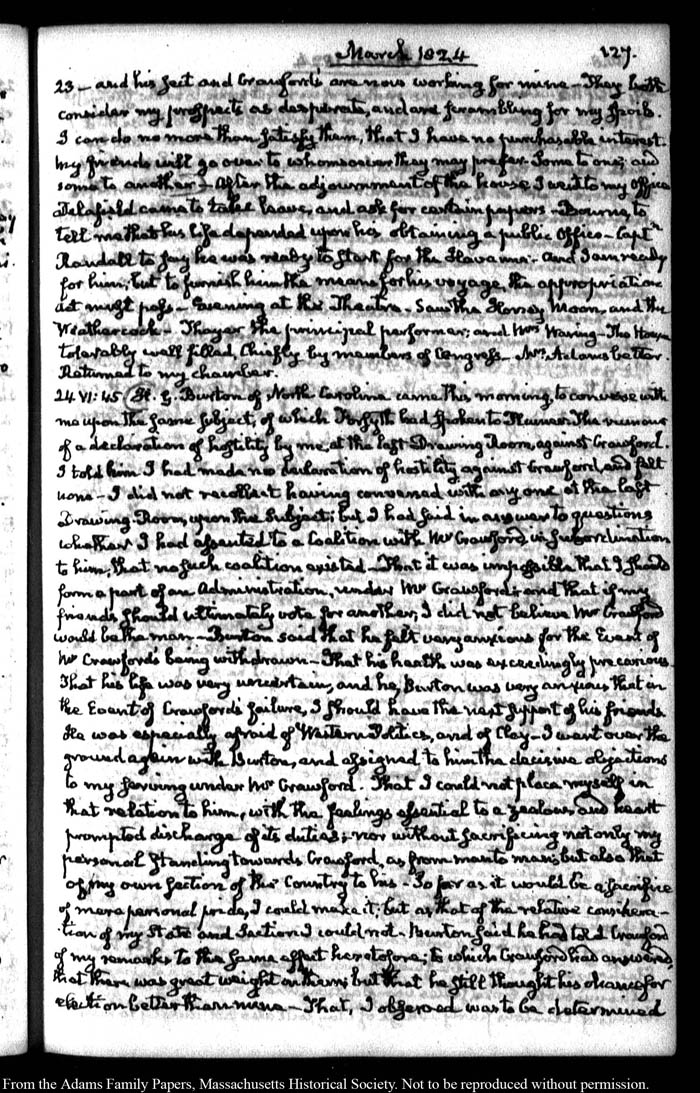 March 1824
127.
23 – and his sect and Crawford's are now working for mine – They both
consider my prospects as desperate, and are scrambling for my spoils.
I can do no more than satisfy them, that I have no purchasable interest.
My friends will go over to whomsoever they may prefer. Some to one; and
some to another – After the adjournment of the house I went to my Office
Delafield came to take leave, and ask for certain papers – Bourne, to
tell me that his life depended upon his obtaining a public Office – Captn
Randall to say he was ready to start for the Havanna. And I am ready
for him; but to furnish him the means for his voyage, the appropriation
act must pass – Evening at the Theatre. Saw the Honey Moon, and the
Weathercock – Thayer the principal performer; and Mrs Waring – The House
tolerably well filled, Chiefly by members of Congress – Mrs Adams better.
Returned to my chamber.
24 VI:45 H. G. Burton of North Carolina came this morning, to converse with
me upon the same subject, of which Forsyth had spoken to Plumer. The rumour
of a declaration of hostility by me, at the last Drawing Room, against Crawford.
I told him I had made no declaration of hostility against Crawford, and felt
none – I did not recollect having conversed with any one at the last
Drawing Room, upon the subject; but I had said in answer to questions
whether I had assented to a Coalition with Mr Crawford, in subordination
to him, that no such coalition existed – That it was impossible that I should
form a part of an Administration, under Mr Crawford; and that if my
friends should ultimately vote for another, I did not believe Mr Crawford
would be the man – Burton said that he felt very anxious for the Event of
Mr Crawford's being withdrawn – That his health was exceedingly precarious.
That his life was very uncertain, and he, Burton was very anxious that in
the Event of Crawford's failure, I should have the next support of his friends.
He was especially afraid of Western Politics, and of Clay – I went over the
ground again with Burton, and assigned to him the decisive objections
to my serving under Mr Crawford. That I could not place myself in
that relation to him, with the feelings essential to a zealous and heart
prompted discharge of its duties; nor without sacrificing not only my
personal standing towards Crawford, as from man to man; but also that
of my own section of the Country to his – So far as it would be a sacrifice
of mere personal pride, I could make it; but as that of the relative considera-
tion of my State and Section I could not – Burton said he had told Crawford
of my remarks to the same effect heretofore; to which Crawford had answered,
that there was great weight in them; but that he still thought his chance for
election better than mine – That, I observed was to be determined
From the Adams Family Papers, Massachusetts Historical Society. Not to be reproduced without permission.